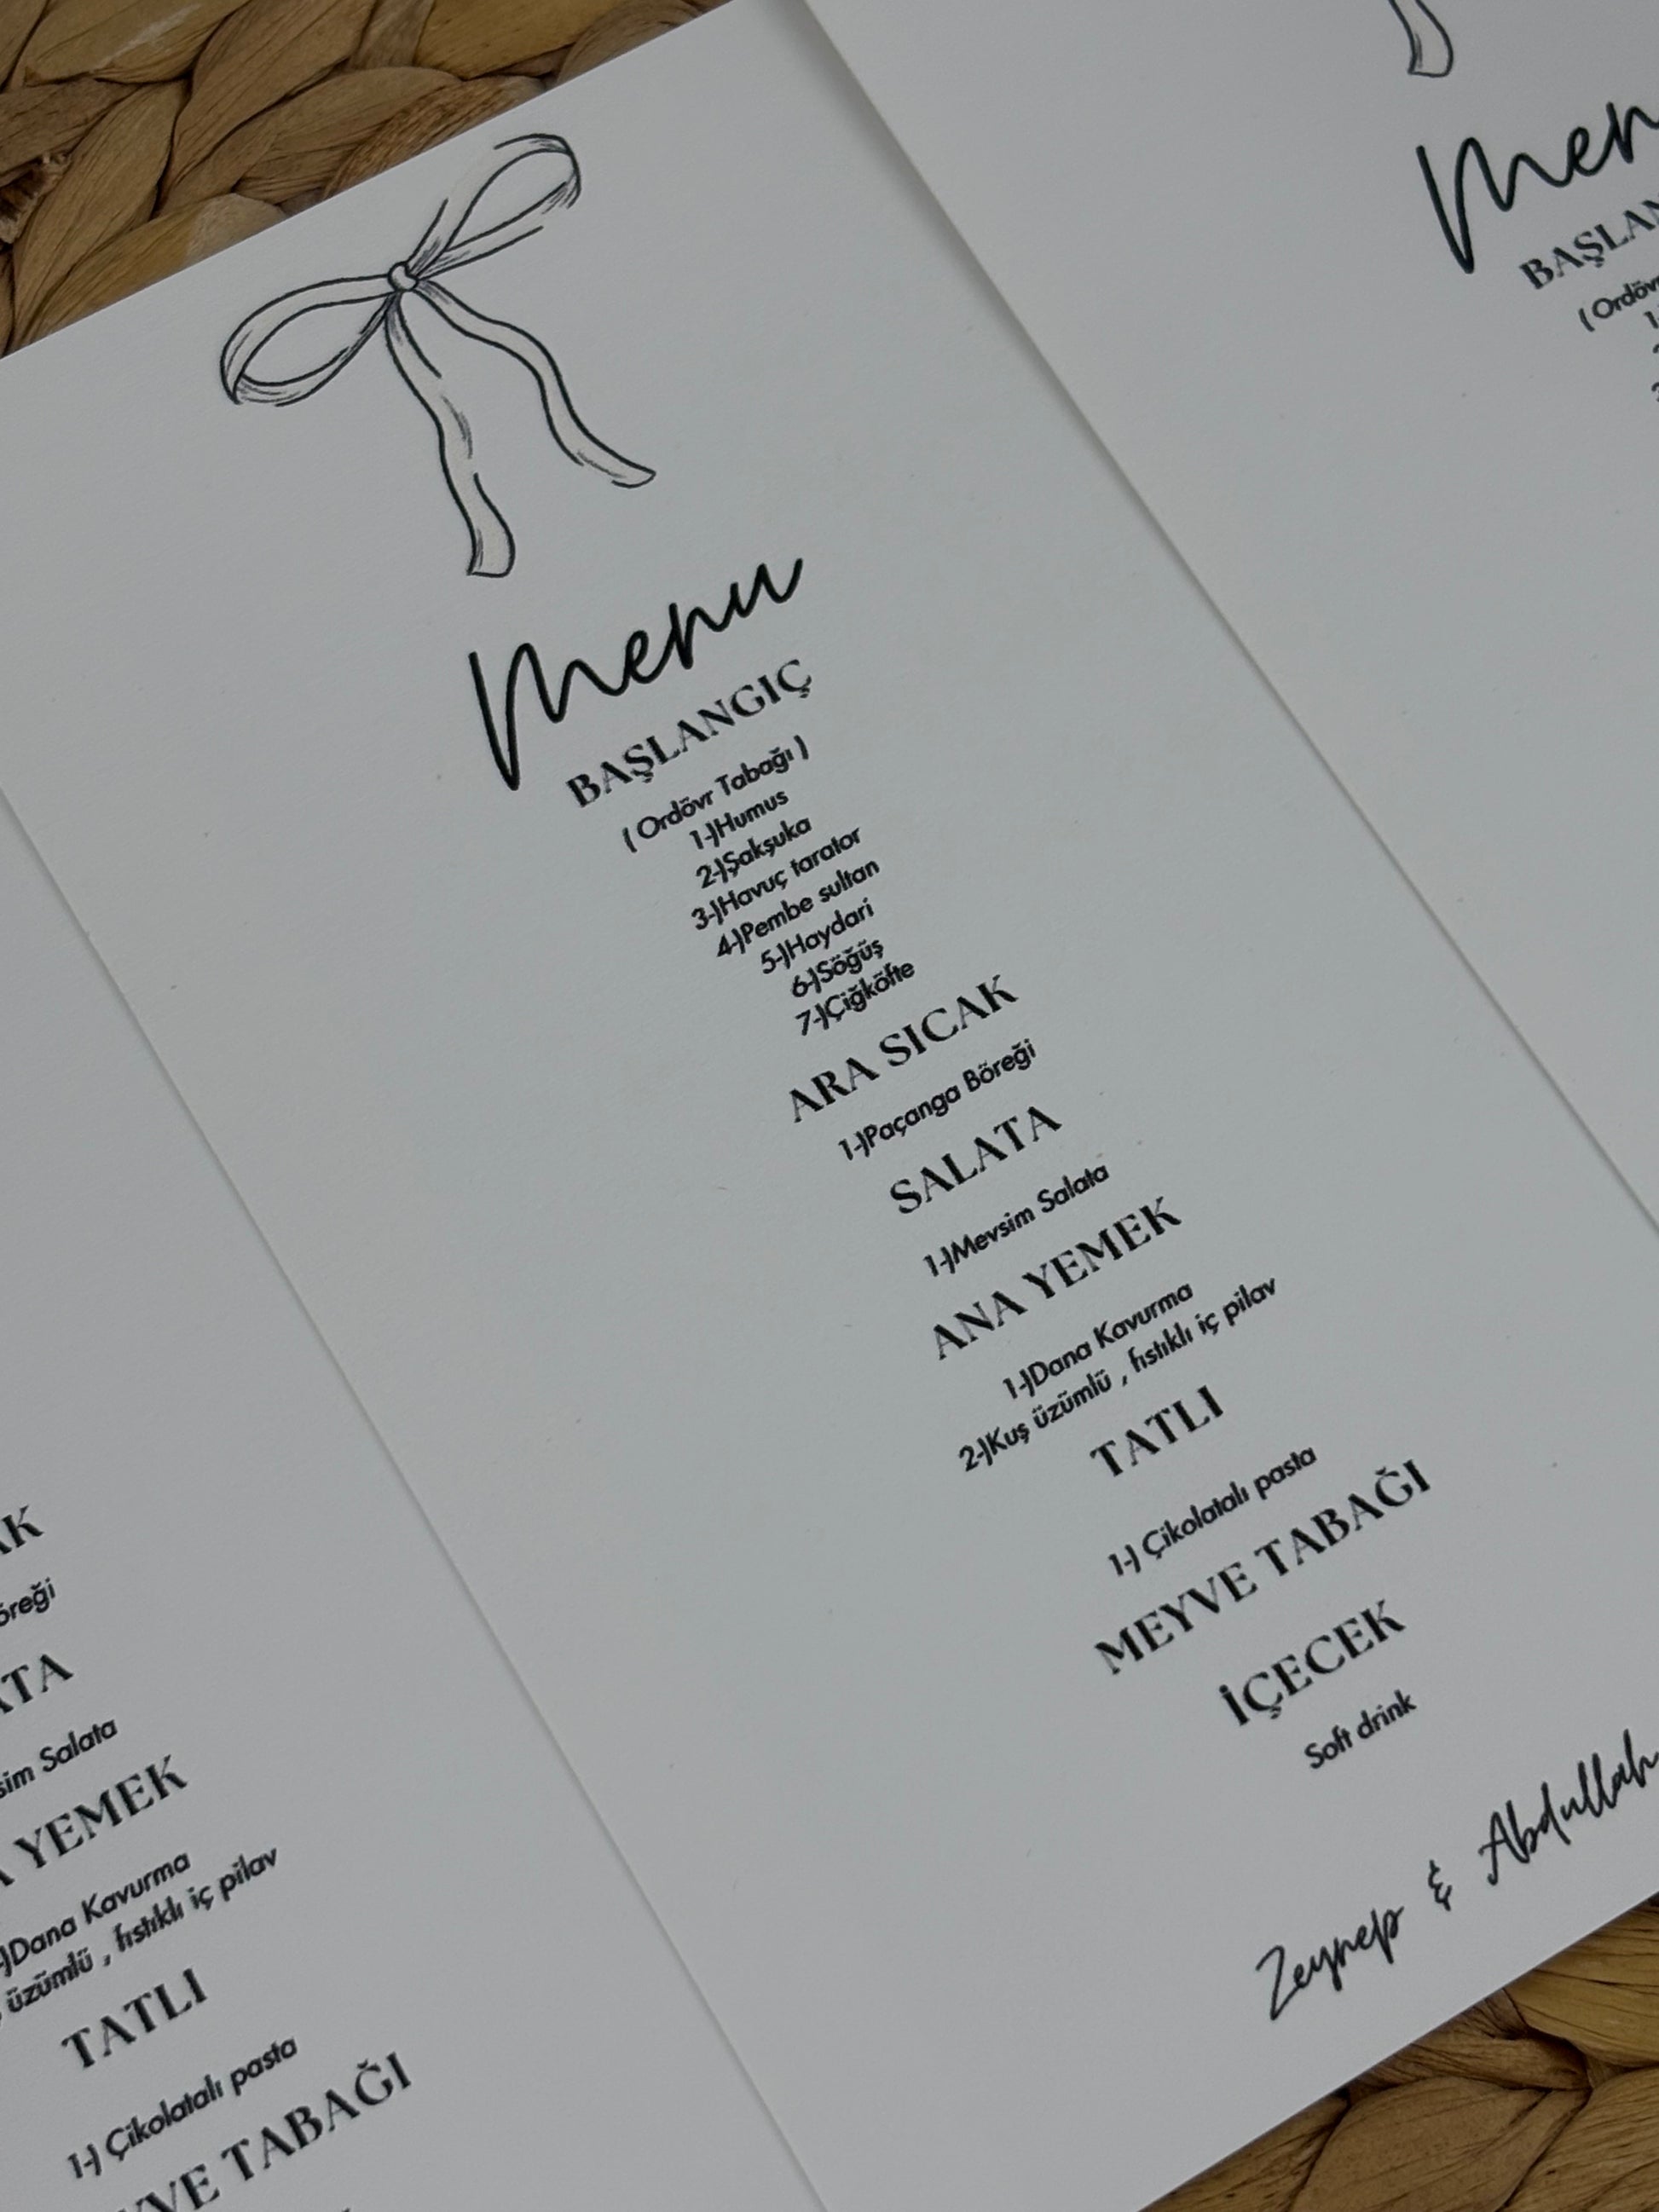 Menu
BAŞLANGIÇ
( Ordövr Tabağı )
1-)Humus
2-)Şakşuka
3-)Havuç tarator
4-)Pembe sultan
5-)Haydari
6-)Söğüş
7-)Çiğköfte
ARA SICAK
1-)Paçanga Böreği
SALATA
1-)Mevsim Salata
ANA YEMEK
1-)Dana Kavurma
2-)Kuş üzümlü , fıstıklı iç pilav
TATLI
1-) Çikolatalı pasta
MEYVE TABAĞI
İÇECEK
Soft drink
Zeynep & Abdullah
Salata
YEMEK
)Dana Kavurma
üzümlü , fıstıklı iç pilav
TATLI
1-) Çikolatalı pasta
TABAĞI